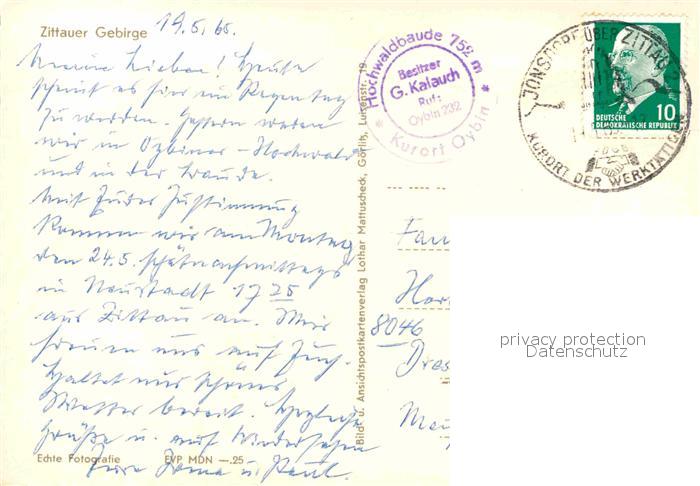 Zittauer Gebirge
19.5.65.
Meine Lieben! Heute
scheint es hier ein Regentag
zu werden. Gestern waren
wir in Oybin - Hochwald
und in der Baude.
Mit Eurer Zustimmung
kommen wir am Montag
den 24.5. spätnachmittags
in Neustadt 17 25
aus Zittau an. Wir
freuen uns auf Euch.
Haltet nur schönes
Wetter bereit. Herzliche
Grüße u. auf Wiedersehen
Eure Irma u. Paul.
Echte Fotografie EVP MDN —.25
Bild- u. Ansichtspostkartenverlag Lothar Mattuscheck, Görlitz, Lutherstr. 19
Hochwaldbaude 752 m
Besitzer
G. Kalauch
Ruf:
Oybin 232
* Kurort Oybin *
JONSDORF ÜBER ZITTAU
KURORT DER WERKTÄTIGEN
10
DEUTSCHE
DEMOKRATISCHE REPUBLIK
Fam
8046
Dres
privacy protection
Datenschutz